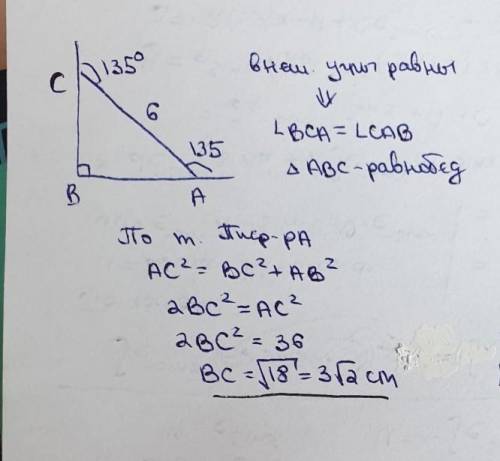 135°
C
6
135
B
A
внеш. углы равны
⇓
∠BCA = ∠CAB
△ABC - равнобед
По т. Пиф-ра
AC² = BC² + AB²
2BC² = AC²
2BC² = 36
BC = √18 = 3√2 cm